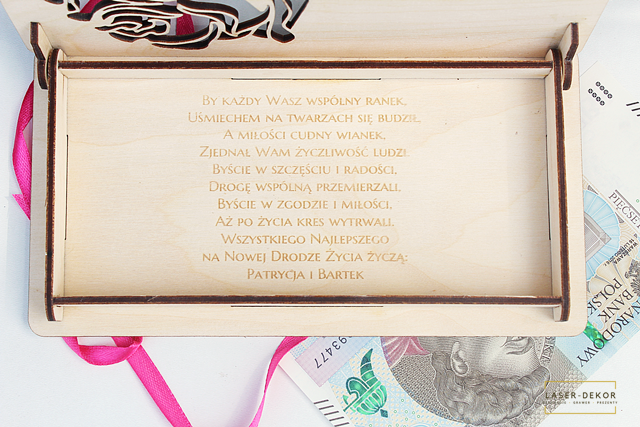 By każdy Wasz wspólny ranek,
Uśmiechem na twarzach się budził,
A miłości cudny wianek,
Zjednał Wam życzliwość ludzi.
Byście w szczęściu i radości,
Drogę wspólną przemierzali,
Byście w zgodzie i miłości,
Aż po życia kres wytrwali.
Wszystkiego Najlepszego
na Nowej Drodze Życia życzą:
Patrycja i Bartek
NARODOWY
BANK
POLSKI
93477
LASER-DEKOR